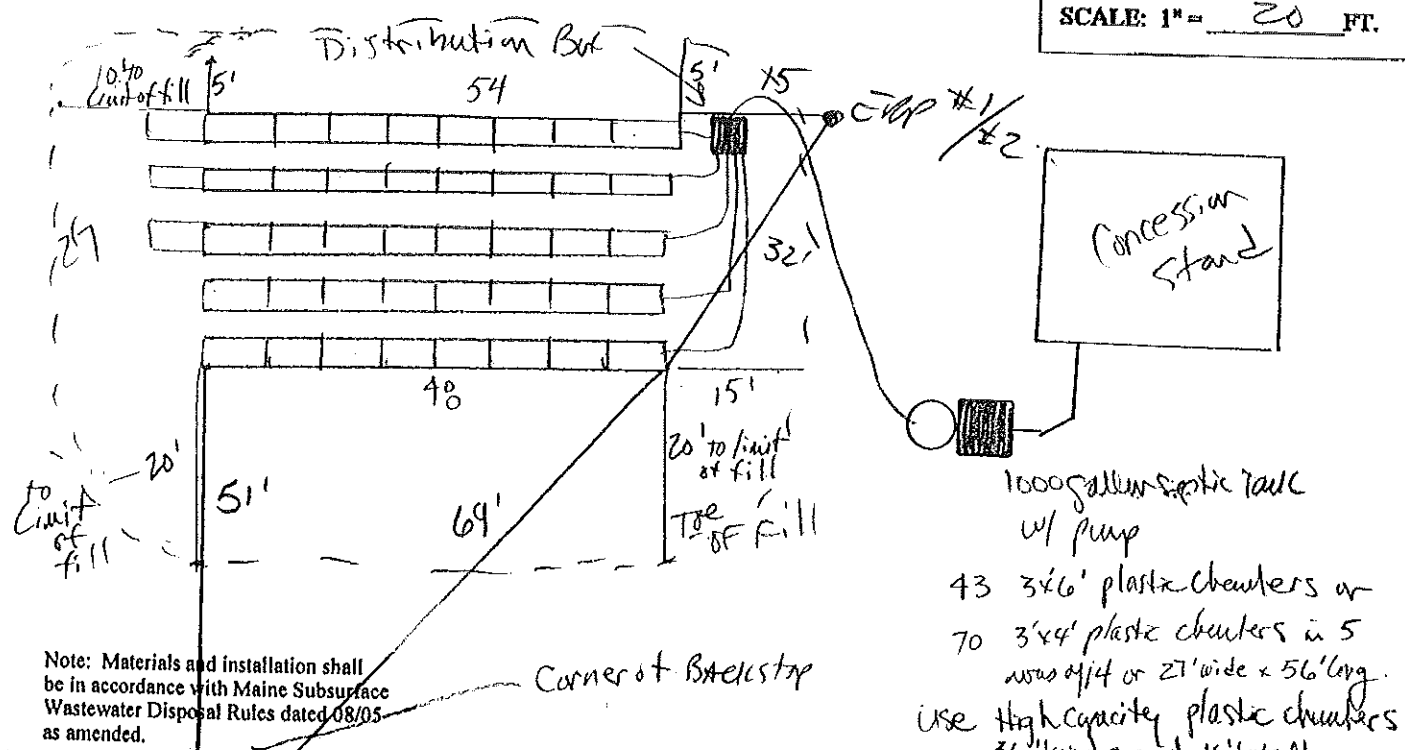 SCALE: 1" = 20 FT.
Distribution Box
10' to
limit of fill
5'
54
5'
15
ERP #1/
#2
Concession
Stand
27
32'
40
15'
20'
to
Limit
of
fill
51'
69'
20' to limit
of fill
Toe
OF Fill
1000 gallon septic tank
w/ pump
43 3'x6' plastic chambers or
70 3'x4' plastic chambers in 5
rows of 14 or 27' wide x 56' long.
use High capacity plastic chambers
Note: Materials and installation shall
be in accordance with Maine Subsurface
Wastewater Disposal Rules dated 08/05
as amended.
Corner of Backstop